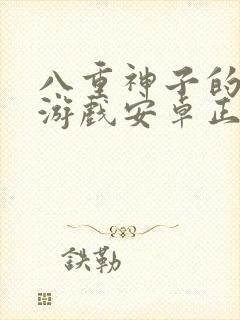 八重神子的
游戏安卓正
鉄勒